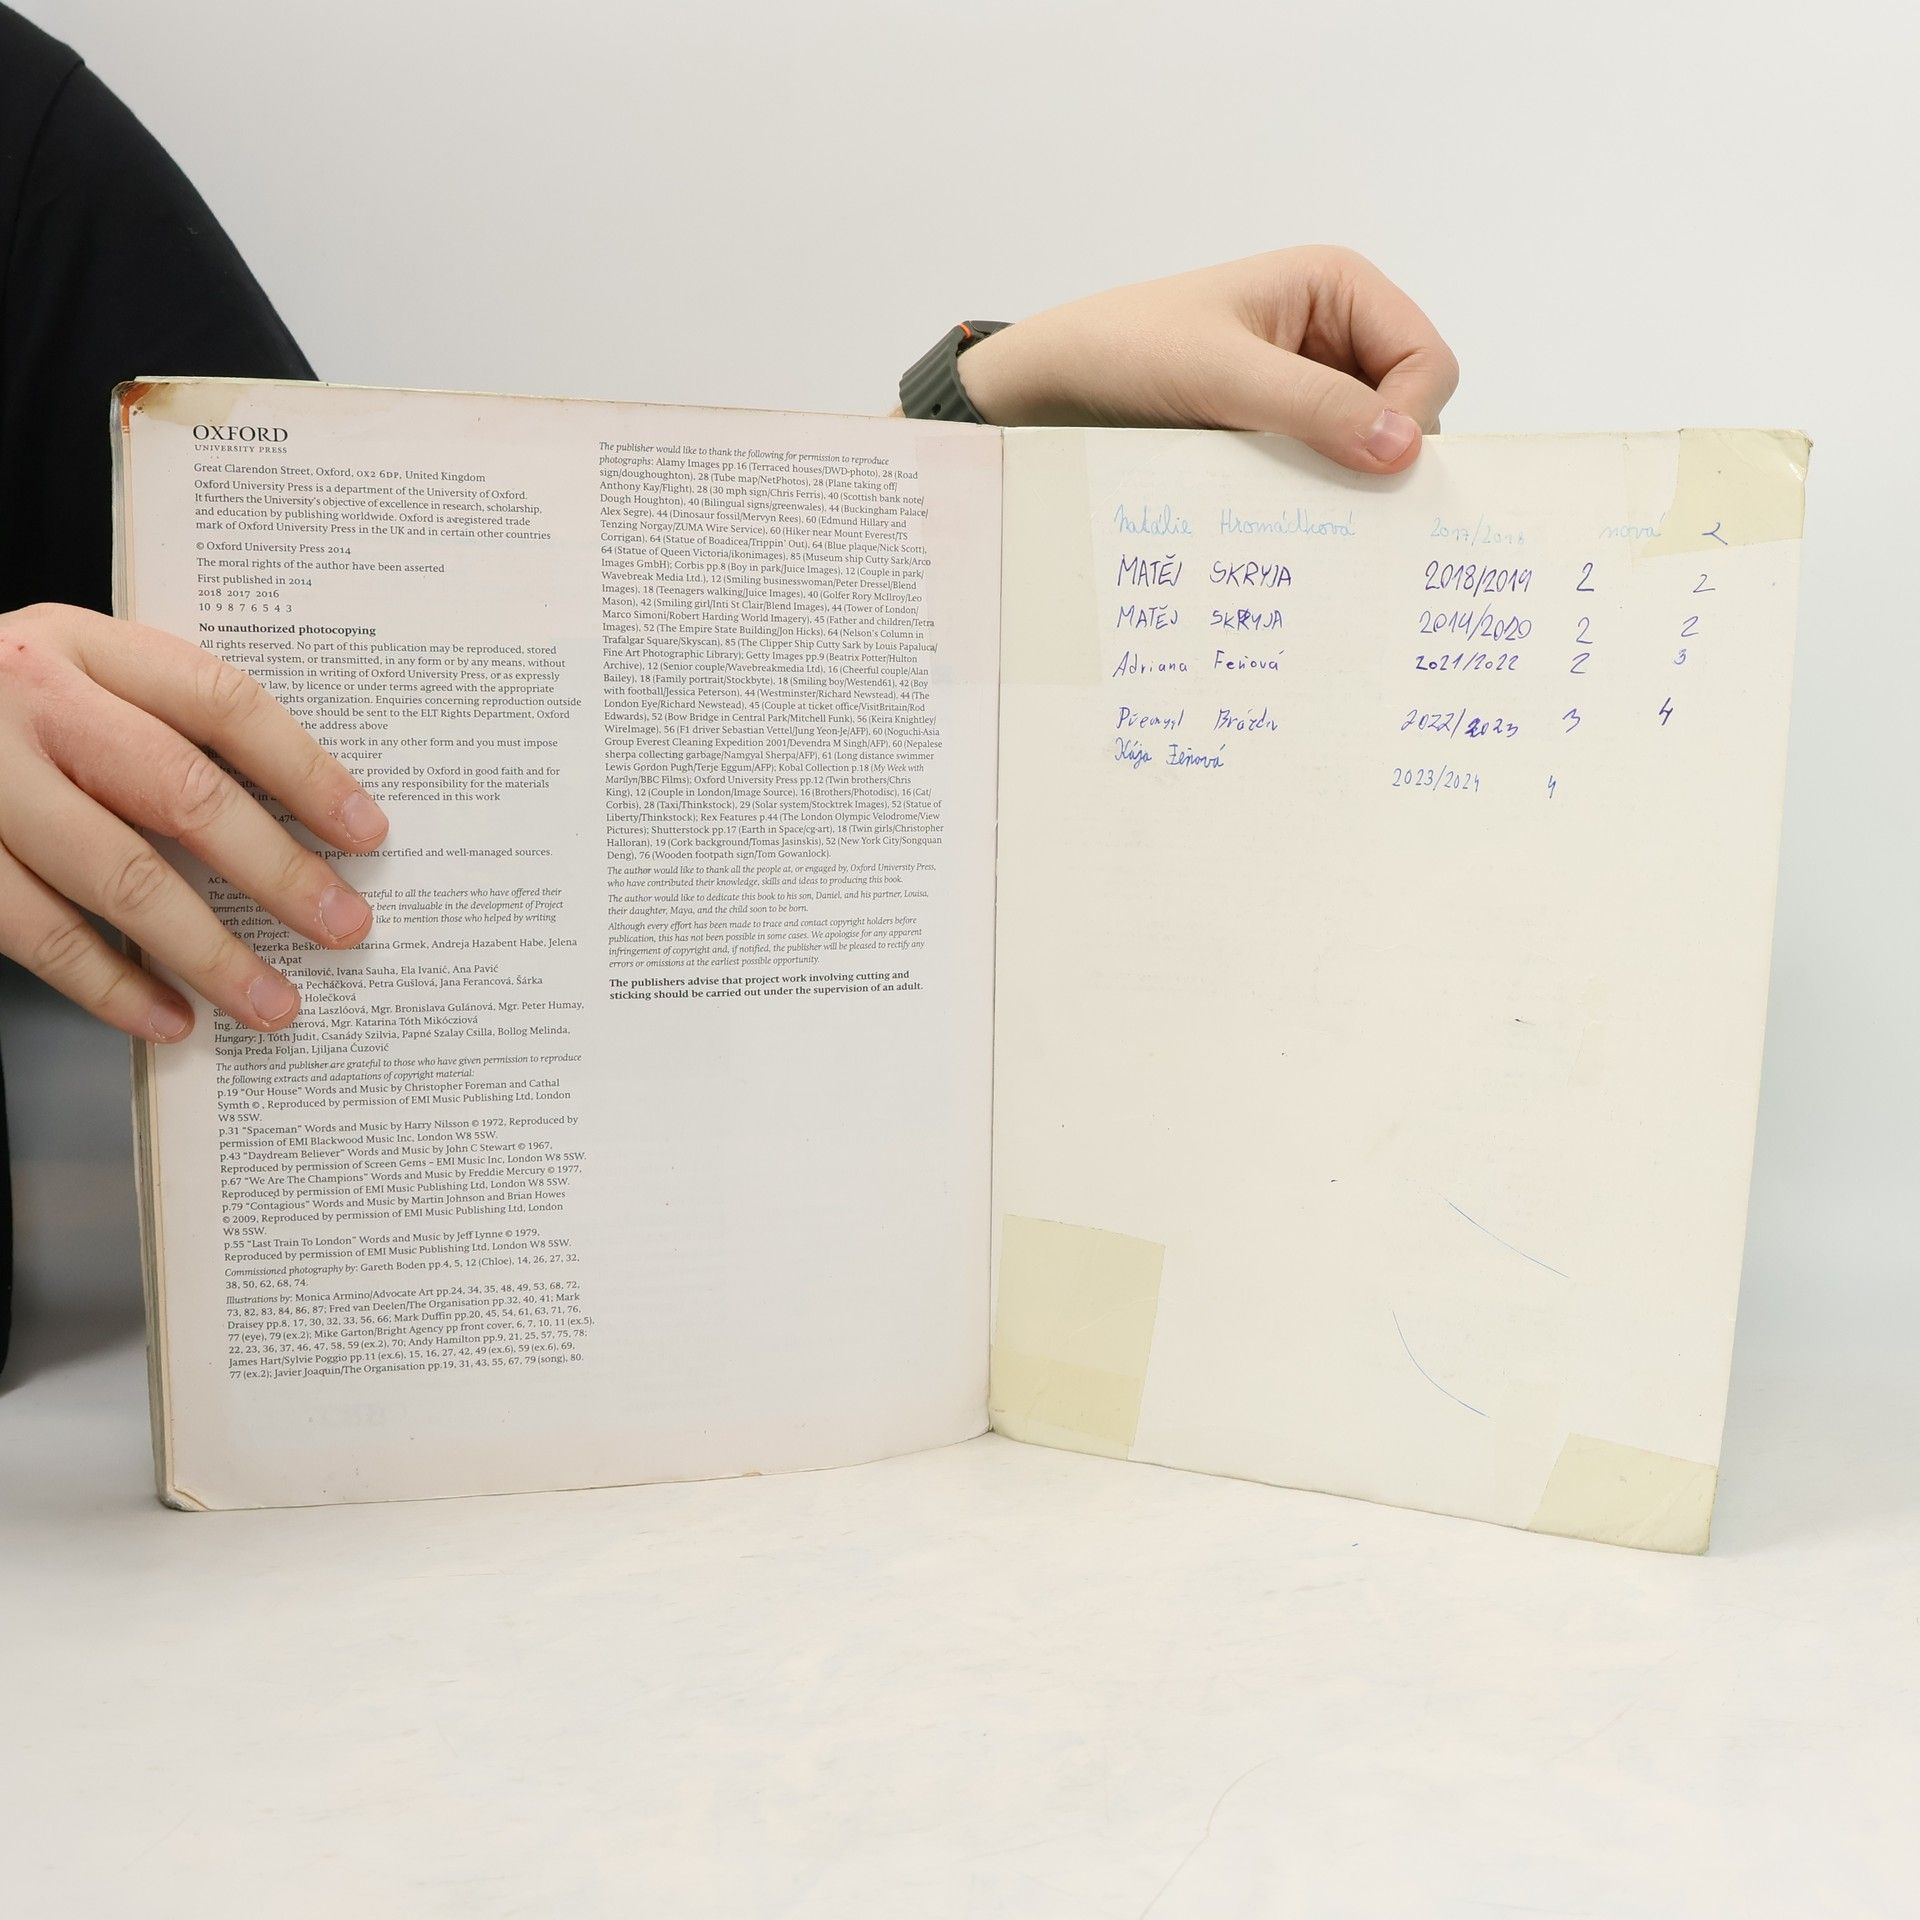 OXFORD
UNIVERSITY PRESS
Great Clarendon Street, Oxford, OX2 6DP, United Kingdom
Oxford University Press is a department of the University of Oxford.
It furthers the University's objective of excellence in research, scholarship,
and education by publishing worldwide. Oxford is a registered trade
mark of Oxford University Press in the UK and in certain other countries
© Oxford University Press 2014
The moral rights of the author have been asserted
First published in 2014
2018 2017 2016
10 9 8 7 6 5 4 3
No unauthorized photocopying
All rights reserved. No part of this publication may be reproduced, stored
retrieval system, or transmitted, in any form or by any means, without
permission in writing of Oxford University Press, or as expressly
law, by licence or under terms agreed with the appropriate
rights organization. Enquiries concerning reproduction outside
above should be sent to the ELT Rights Department, Oxford
the address above
this work in any other form and you must impose
acquirer
are provided by Oxford in good faith and for
any responsibility for the materials
referenced in this work
paper from certified and well-managed sources.
The grateful to all the teachers who have offered their
comments been invaluable in the development of Project
like to mention those who helped by writing
on Project:
Jezerka Katarina Grmek, Andreja Hazabent Habe, Jelena
Apat
Branilović, Ivana Sauha, Ela Ivanić, Ana Pavić
Pecháčková, Petra Gušlová, Jana Ferancová, Šárka
Holečková
Laszlóová, Mgr. Bronislava Gulánová, Mgr. Peter Humay,
Ing. Mgr. Katarina Tóth Mikócziová
Hungary: J. Tóth Judit, Csanády Szilvia, Papné Szalay Csilla, Bollog Melinda,
Sonja Preda Foljan, Ljiljana Ćuzović
The authors and publisher are grateful to those who have given permission to reproduce
the following extracts and adaptations of copyright material:
p.19 "Our House" Words and Music by Christopher Foreman and Cathal
Symth ©, Reproduced by permission of EMI Music Publishing Ltd, London
W8 5SW.
p.31 "Spaceman" Words and Music by Harry Nilsson © 1972, Reproduced by
permission of EMI Blackwood Music Inc, London W8 5SW.
p.43 "Daydream Believer" Words and Music by John C Stewart © 1967,
Reproduced by permission of Screen Gems – EMI Music Inc, London W8 5SW.
p.67 "We Are The Champions" Words and Music by Freddie Mercury © 1977,
Reproduced by permission of EMI Music Publishing Ltd, London W8 5SW.
p.79 "Contagious" Words and Music by Martin Johnson and Brian Howes
© 2009, Reproduced by permission of EMI Music Publishing Ltd, London
W8 5SW.
p.55 "Last Train To London" Words and Music by Jeff Lynne © 1979,
Reproduced by permission of EMI Music Publishing Ltd, London W8 5SW.
Commissioned photography by: Gareth Boden pp.4, 5, 12 (Chloe), 14, 26, 27, 32,
38, 50, 62, 68, 74.
Illustrations by: Monica Armino/Advocate Art pp.24, 34, 35, 48, 49, 53, 68, 72,
73, 82, 83, 84, 86, 87; Fred van Deelen/The Organisation pp.32, 40, 41; Mark
Draisey pp.8, 17, 30, 32, 33, 56, 66; Mark Duffin pp.20, 45, 54, 61, 63, 71, 76,
77 (eye), 79 (ex.2); Mike Garton/Bright Agency pp front cover, 6, 7, 10, 11 (ex.5),
22, 23, 36, 37, 46, 47, 58, 59 (ex.2), 70; Andy Hamilton pp.9, 21, 25, 57, 75, 78;
James Hart/Sylvie Poggio pp.11 (ex.6), 15, 16, 27, 42, 49 (ex.6), 59 (ex.6), 69,
77 (ex.2); Javier Joaquin/The Organisation pp.19, 31, 43, 55, 67, 79 (song), 80.
The publisher would like to thank the following for permission to reproduce
photographs: Alamy Images pp.16 (Terraced houses/DWD-photo), 28 (Road
sign/doughoughton), 28 (Tube map/NetPhotos), 28 (Plane taking off/
Anthony Kay/Flight), 28 (30 mph sign/Chris Ferris), 40 (Scottish bank note/
Dough Houghton), 40 (Bilingual signs/greenwales), 44 (Buckingham Palace/
Alex Segre), 44 (Dinosaur fossil/Mervyn Rees), 60 (Edmund Hillary and
Tenzing Norgay/ZUMA Wire Service), 60 (Hiker near Mount Everest/TS
Corrigan), 64 (Statue of Boadicea/Trippin' Out), 64 (Blue plaque/Nick Scott),
64 (Statue of Queen Victoria/ikonimages), 85 (Museum ship Cutty Sark/Arco
Images GmbH); Corbis pp.8 (Boy in park/Juice Images), 12 (Couple in park/
Wavebreak Media Ltd.), 12 (Smiling businesswoman/Peter Dressel/Blend
Images), 18 (Teenagers walking/Juice Images), 40 (Golfer Rory McIlroy/Leo
Mason), 42 (Smiling girl/Inti St Clair/Blend Images), 44 (Tower of London/
Marco Simoni/Robert Harding World Imagery), 45 (Father and children/Tetra
Images), 52 (The Empire State Building/Jon Hicks), 64 (Nelson's Column in
Trafalgar Square/Skyscan), 85 (The Clipper Ship Cutty Sark by Louis Papaluca/
Fine Art Photographic Library); Getty Images pp.9 (Beatrix Potter/Hulton
Archive), 12 (Senior couple/Wavebreakmedia Ltd), 16 (Cheerful couple/Alan
Bailey), 18 (Family portrait/Stockbyte), 18 (Smiling boy/Westend61), 42 (Boy
with football/Jessica Peterson), 44 (Westminster/Richard Newstead), 44 (The
London Eye/Richard Newstead), 45 (Couple at ticket office/VisitBritain/Rod
Edwards), 52 (Bow Bridge in Central Park/Mitchell Funk), 56 (Keira Knightley/
WireImage), 56 (F1 driver Sebastian Vettel/Jung Yeon-Je/AFP), 60 (Noguchi-Asia
Group Everest Cleaning Expedition 2001/Devendra M Singh/AFP), 60 (Nepalese
sherpa collecting garbage/Namgyal Sherpa/AFP), 61 (Long distance swimmer
Lewis Gordon Pugh/Terje Eggum/AFP); Kobal Collection p.18 (My Week with
Marilyn/BBC Films); Oxford University Press pp.12 (Twin brothers/Chris
King), 12 (Couple in London/Image Source), 16 (Brothers/Photodisc), 16 (Cat/
Corbis), 28 (Taxi/Thinkstock), 29 (Solar system/Stocktrek Images), 52 (Statue of
Liberty/Thinkstock); Rex Features p.44 (The London Olympic Velodrome/View
Pictures); Shutterstock pp.17 (Earth in Space/cg-art), 18 (Twin girls/Christopher
Halloran), 19 (Cork background/Tomas Jasinskis), 52 (New York City/Songquan
Deng), 76 (Wooden footpath sign/Tom Gowanlock).
The author would like to thank all the people at, or engaged by, Oxford University Press,
who have contributed their knowledge, skills and ideas to producing this book.
The author would like to dedicate this book to his son, Daniel, and his partner, Louisa,
their daughter, Maya, and the child soon to be born.
Although every effort has been made to trace and contact copyright holders before
publication, this has not been possible in some cases. We apologise for any apparent
infringement of copyright and, if notified, the publisher will be pleased to rectify any
errors or omissions at the earliest possible opportunity.
The publishers advise that project work involving cutting and
sticking should be carried out under the supervision of an adult.
Natálie Hromádková 2017/2018 nová 2
MATĚJ SKRYJA 2018/2019 2 2
MATĚJ SKRYJA 2019/2020 2 2
Adriana Feňová 2021/2022 2 3
Přemysl Brázda 2022/2023 3 4
Kája Feňová
2023/2024 4